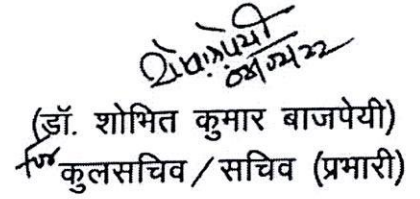 (डॉ. शोभित कुमार बाजपेयी)
for कुलसचिव / सचिव (प्रभारी)